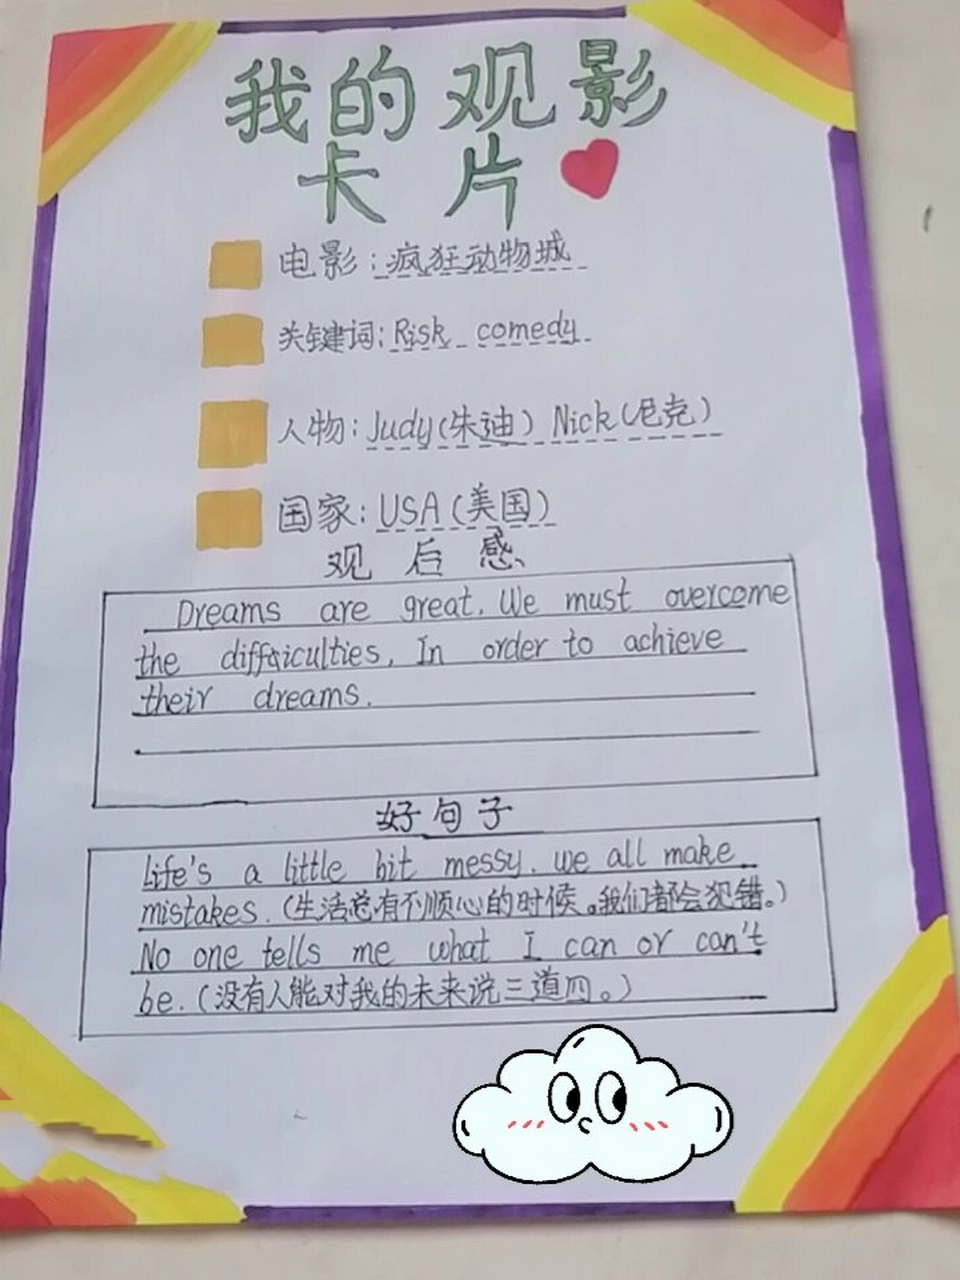 我的观影
卡片
电影：疯狂动物城
关键词：Risk comedy
人物：Judy（朱迪）Nick（尼克）
国家：USA（美国）
观后感
Dreams are great. We must overcome
the difficulties. In order to achieve
their dreams.
好句子
Life's a little bit messy. we all make
mistakes.（生活总有不顺心的时候。我们都会犯错。）
No one tells me what I can or can't
be.（没有人能对我的未来说三道四。）